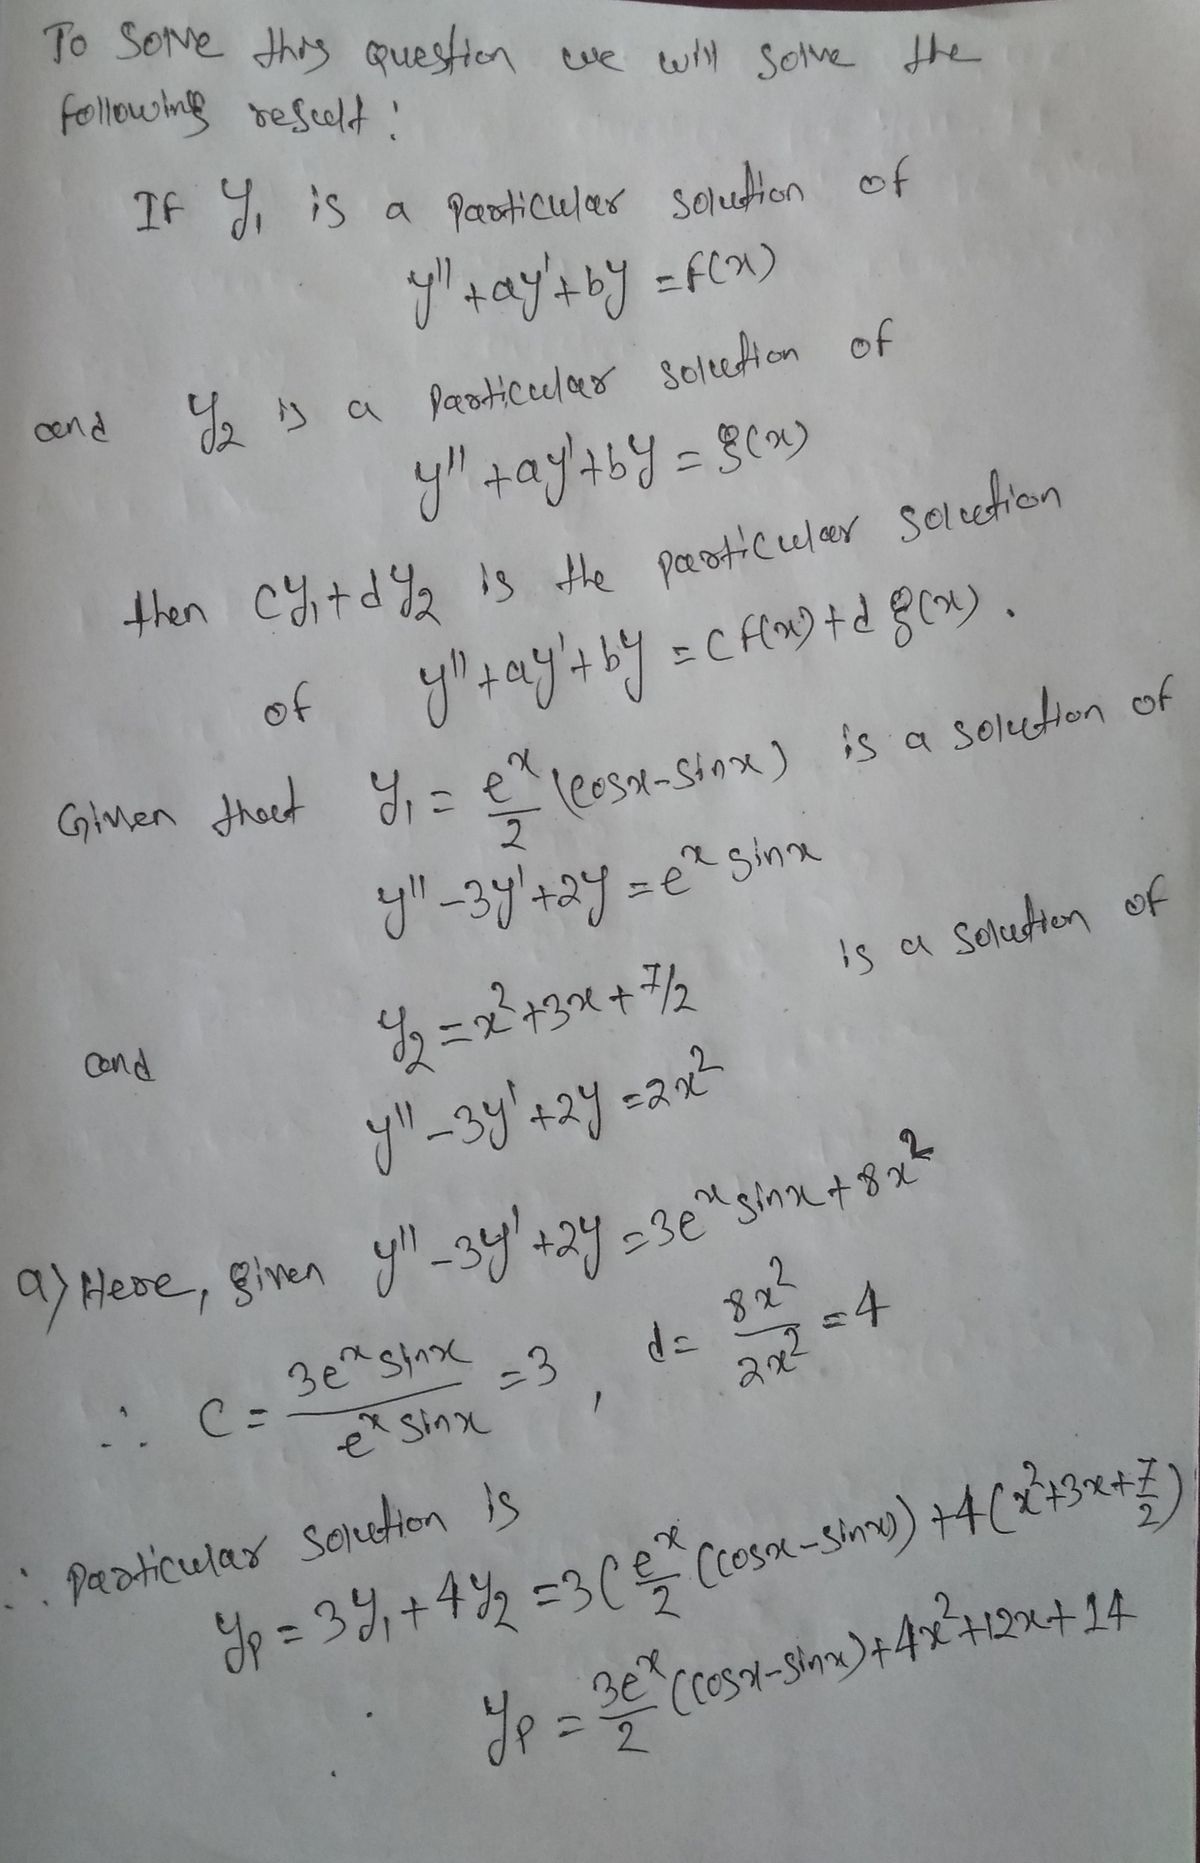 To solve this question we will solve the
following result:
If y₁ is a particular solution of
y'' + ay' + by = f(x)
and y₂ is a particular solution of
y'' + ay' + by = g(x)
then cy₁ + dy₂ is the particular solution
of y'' + ay' + by = c f(x) + d g(x).
Given that y₁ = e^x/2 (cosx - sinx) is a solution of
y'' - 3y' + 2y = e^x sinx
and y₂ = x² + 3x + 7/2 is a solution of
y'' - 3y' + 2y = 2x²
a) Here, given y'' - 3y' + 2y = 3e^x sinx + 8x²
∴ C = 3e^x sinx / e^x sinx = 3, d = 8x²/2x² = 4
∴ Particular solution is
yₚ = 3y₁ + 4y₂ = 3(e^x/2 (cosx - sinx)) + 4(x² + 3x + 7/2)
yₚ = 3e^x/2 (cosx - sinx) + 4x² + 12x + 14